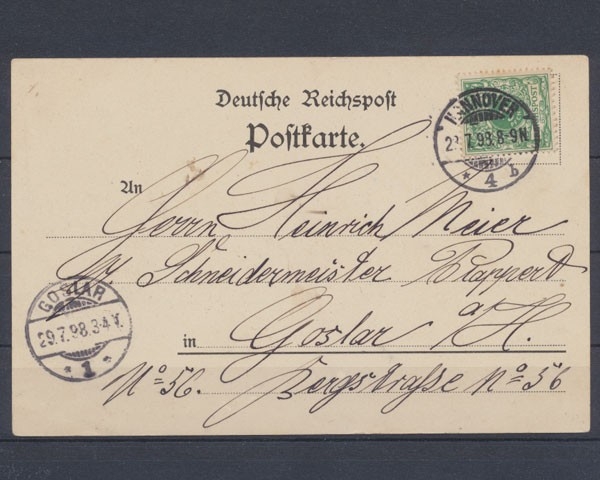 Deutsche Reichspost
Postkarte.
HANNOVER
7.98.8-9N.
* 4 b
An
Herrn Heinrich Meier
Schneidermeister Klappert
in Goslar a/H.
No 56. Bergstraße No 56
GOSLAR
29.7.98.3-4V.
* 1 *